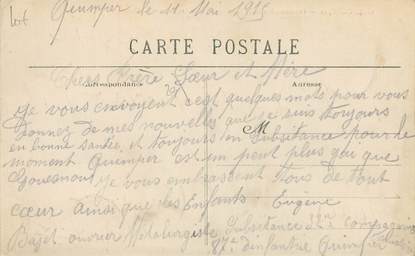 Quimper le 11 Mai 1915
CARTE POSTALE
Correspondance
Adresse
Chers Frère Sœur et Mère
Je vous envoyent c'est quelques mots pour vous
donnez de mes nouvelles que je suis toujours
en bonne santée, et toujours en Subsitance pour le
M
moment Quimper est un peut plus gai que
Gouesnou, je vous embrassent tous de tout
cœur ainsi que les Enfants Eugène
ouvrier Métalurgiste Subsitance 22e compagnie
d'infantrie Quimper